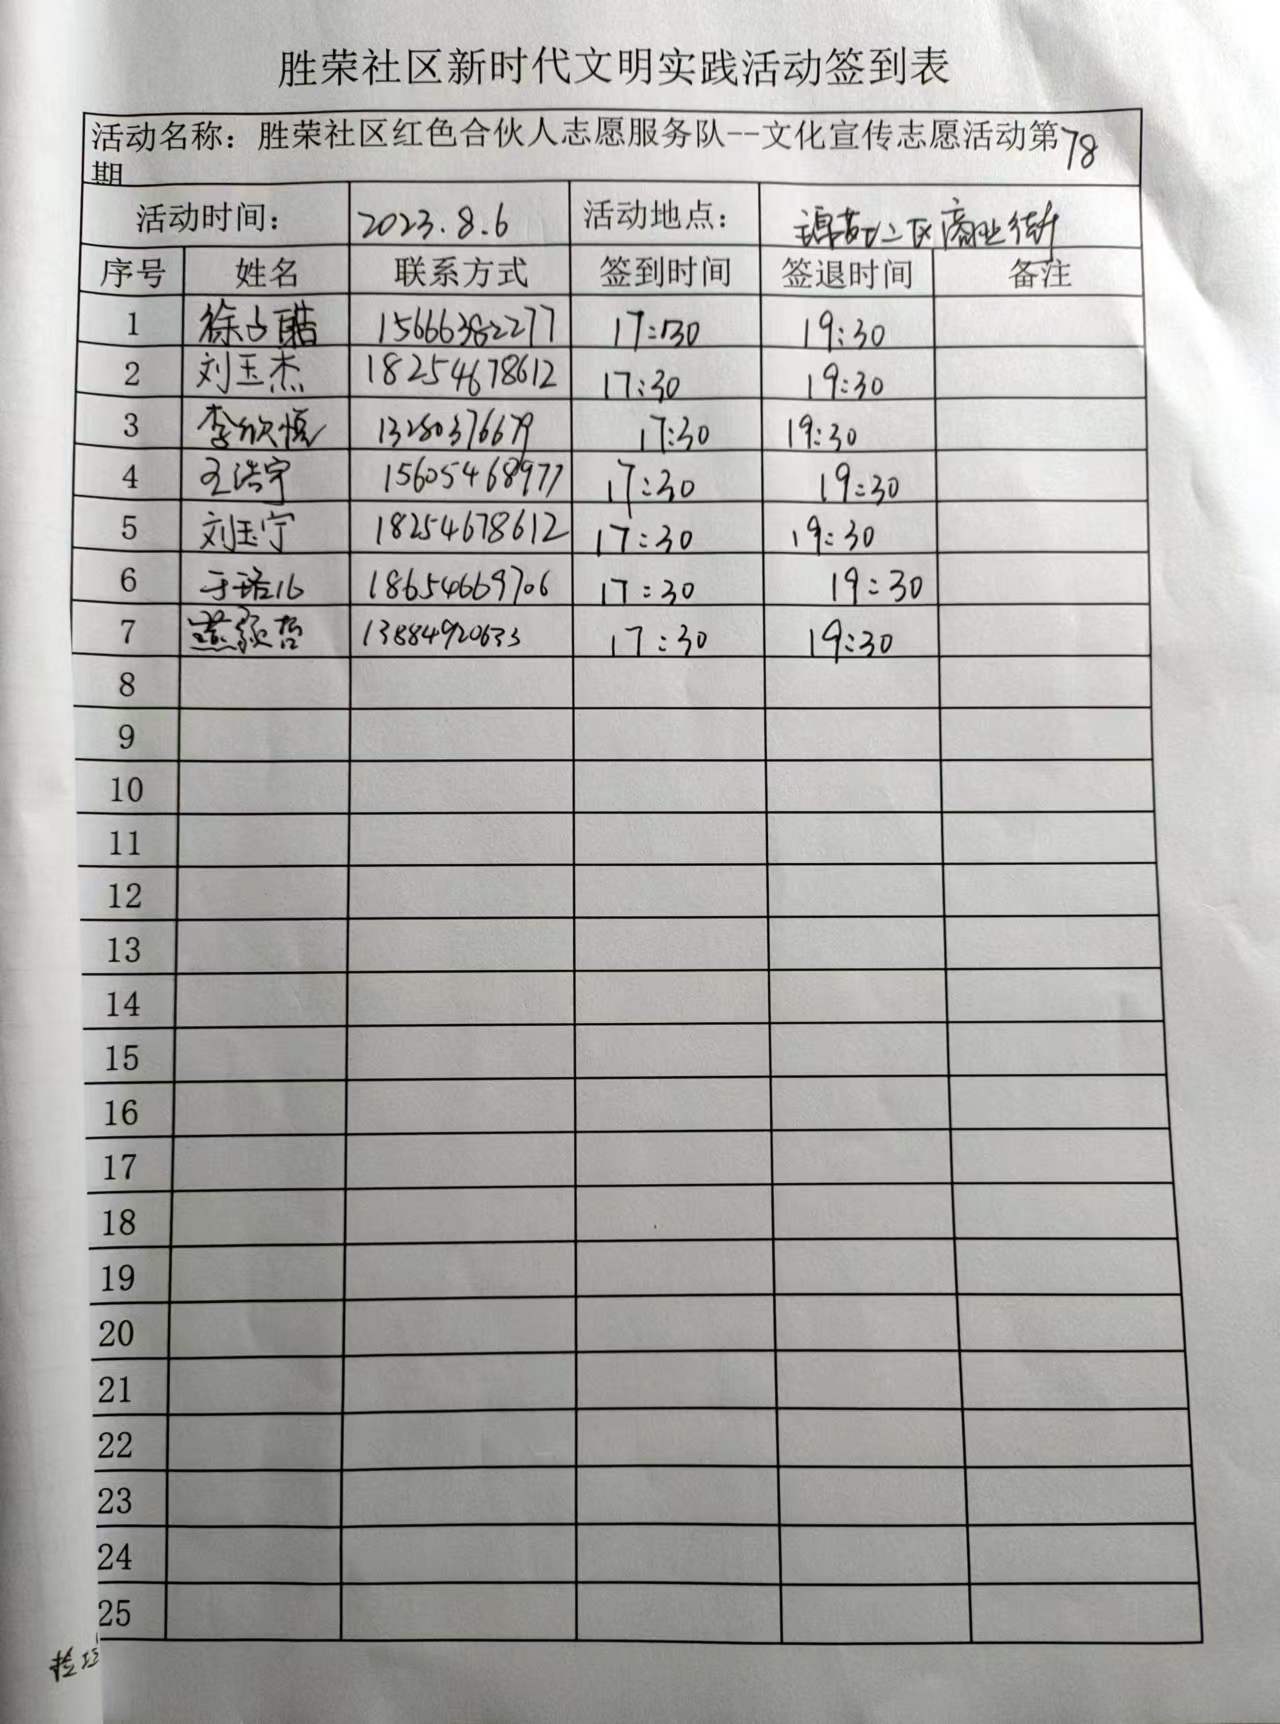 胜荣社区新时代文明实践活动签到表
活动名称：胜荣社区红色合伙人志愿服务队--文化宣传志愿活动第78
期
活动时间： 2023.8.6 活动地点： 锦苑二区商业街
序号 姓名 联系方式 签到时间 签退时间 备注
1 徐 15666382277 17:30 19:30
2 刘玉杰 18254678612 17:30 19:30
3 李欣慎 13280376679 17:30 19:30
4 王浩宇 15605468977 17:30 19:30
5 刘玉宁 18254678612 17:30 19:30
6 于 18654669706 17:30 19:30
7 哲 13884920633 17:30 19:30
8
9
10
11
12
13
14
15
16
17
18
19
20
21
22
23
24
25